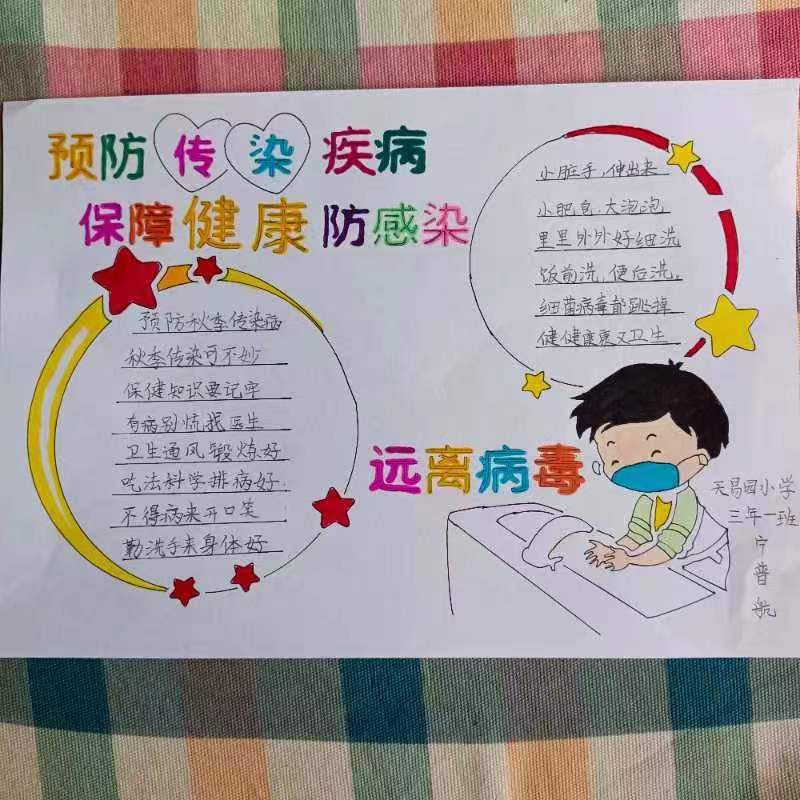 预防传染疾病
保障健康防感染
预防秋季传染病
秋季传染可不妙
保健知识要记牢
有病别慌报医生
卫生通风锻炼好
吃法科学排病好
不得病来开口笑
勤洗手来身体好
小脏手,伸出来
小肥皂.大泡泡
里里外外好细洗
饭前洗,便后洗,
细菌病毒都跳掉
健健康康又卫生
远离病毒
天易四小学
三年一班
宁普航